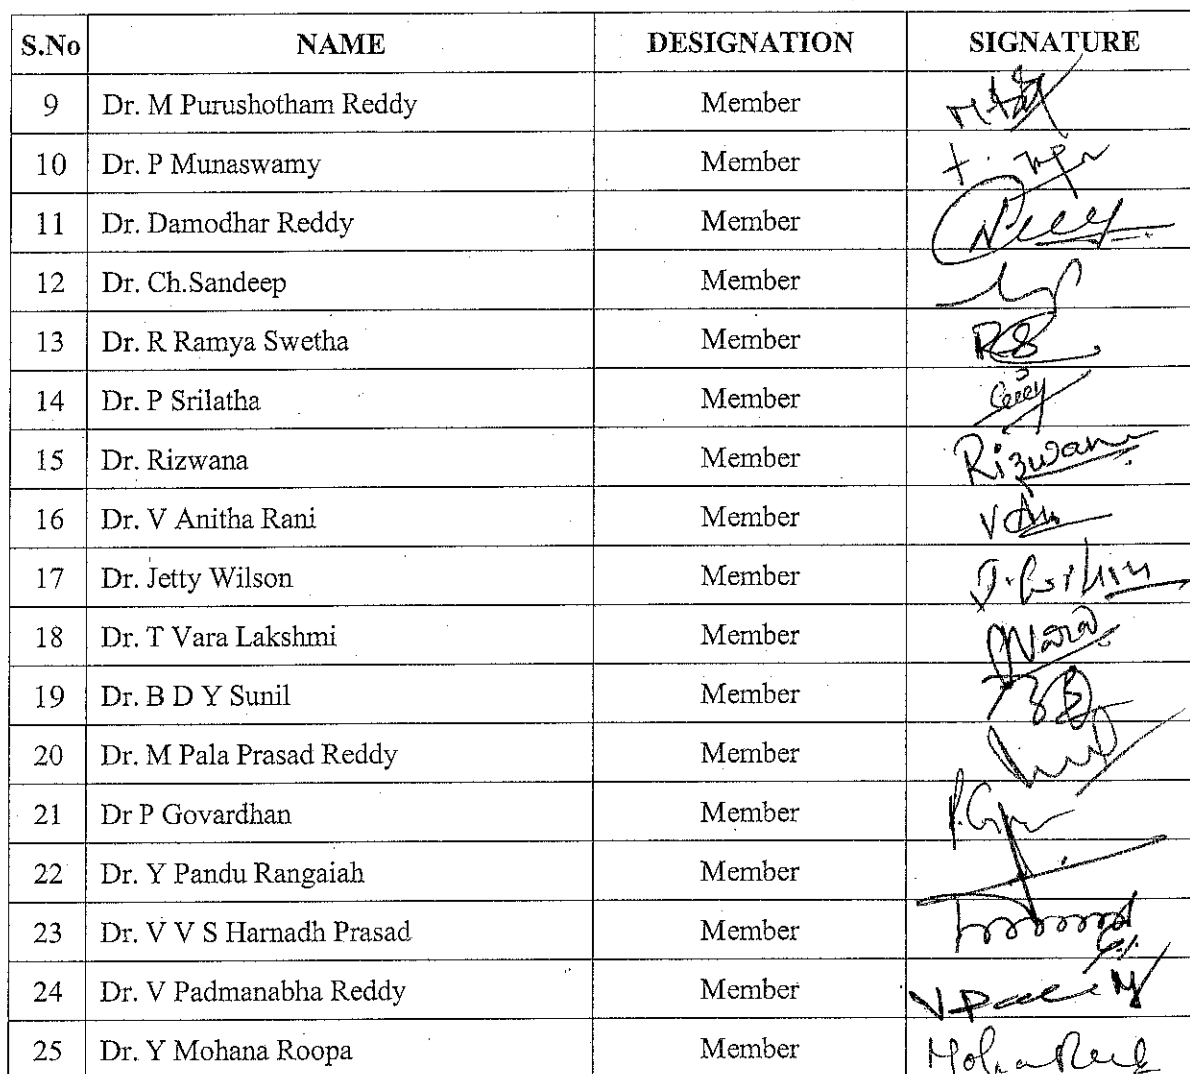 S.No NAME DESIGNATION SIGNATURE
9 Dr. M Purushotham Reddy Member
10 Dr. P Munaswamy Member
11 Dr. Damodhar Reddy Member
12 Dr. Ch.Sandeep Member
13 Dr. R Ramya Swetha Member
14 Dr. P Srilatha Member
15 Dr. Rizwana Member Rizwana
16 Dr. V Anitha Rani Member
17 Dr. Jetty Wilson Member
18 Dr. T Vara Lakshmi Member
19 Dr. B D Y Sunil Member
20 Dr. M Pala Prasad Reddy Member
21 Dr P Govardhan Member
22 Dr. Y Pandu Rangaiah Member
23 Dr. V V S Harnadh Prasad Member
24 Dr. V Padmanabha Reddy Member
25 Dr. Y Mohana Roopa Member